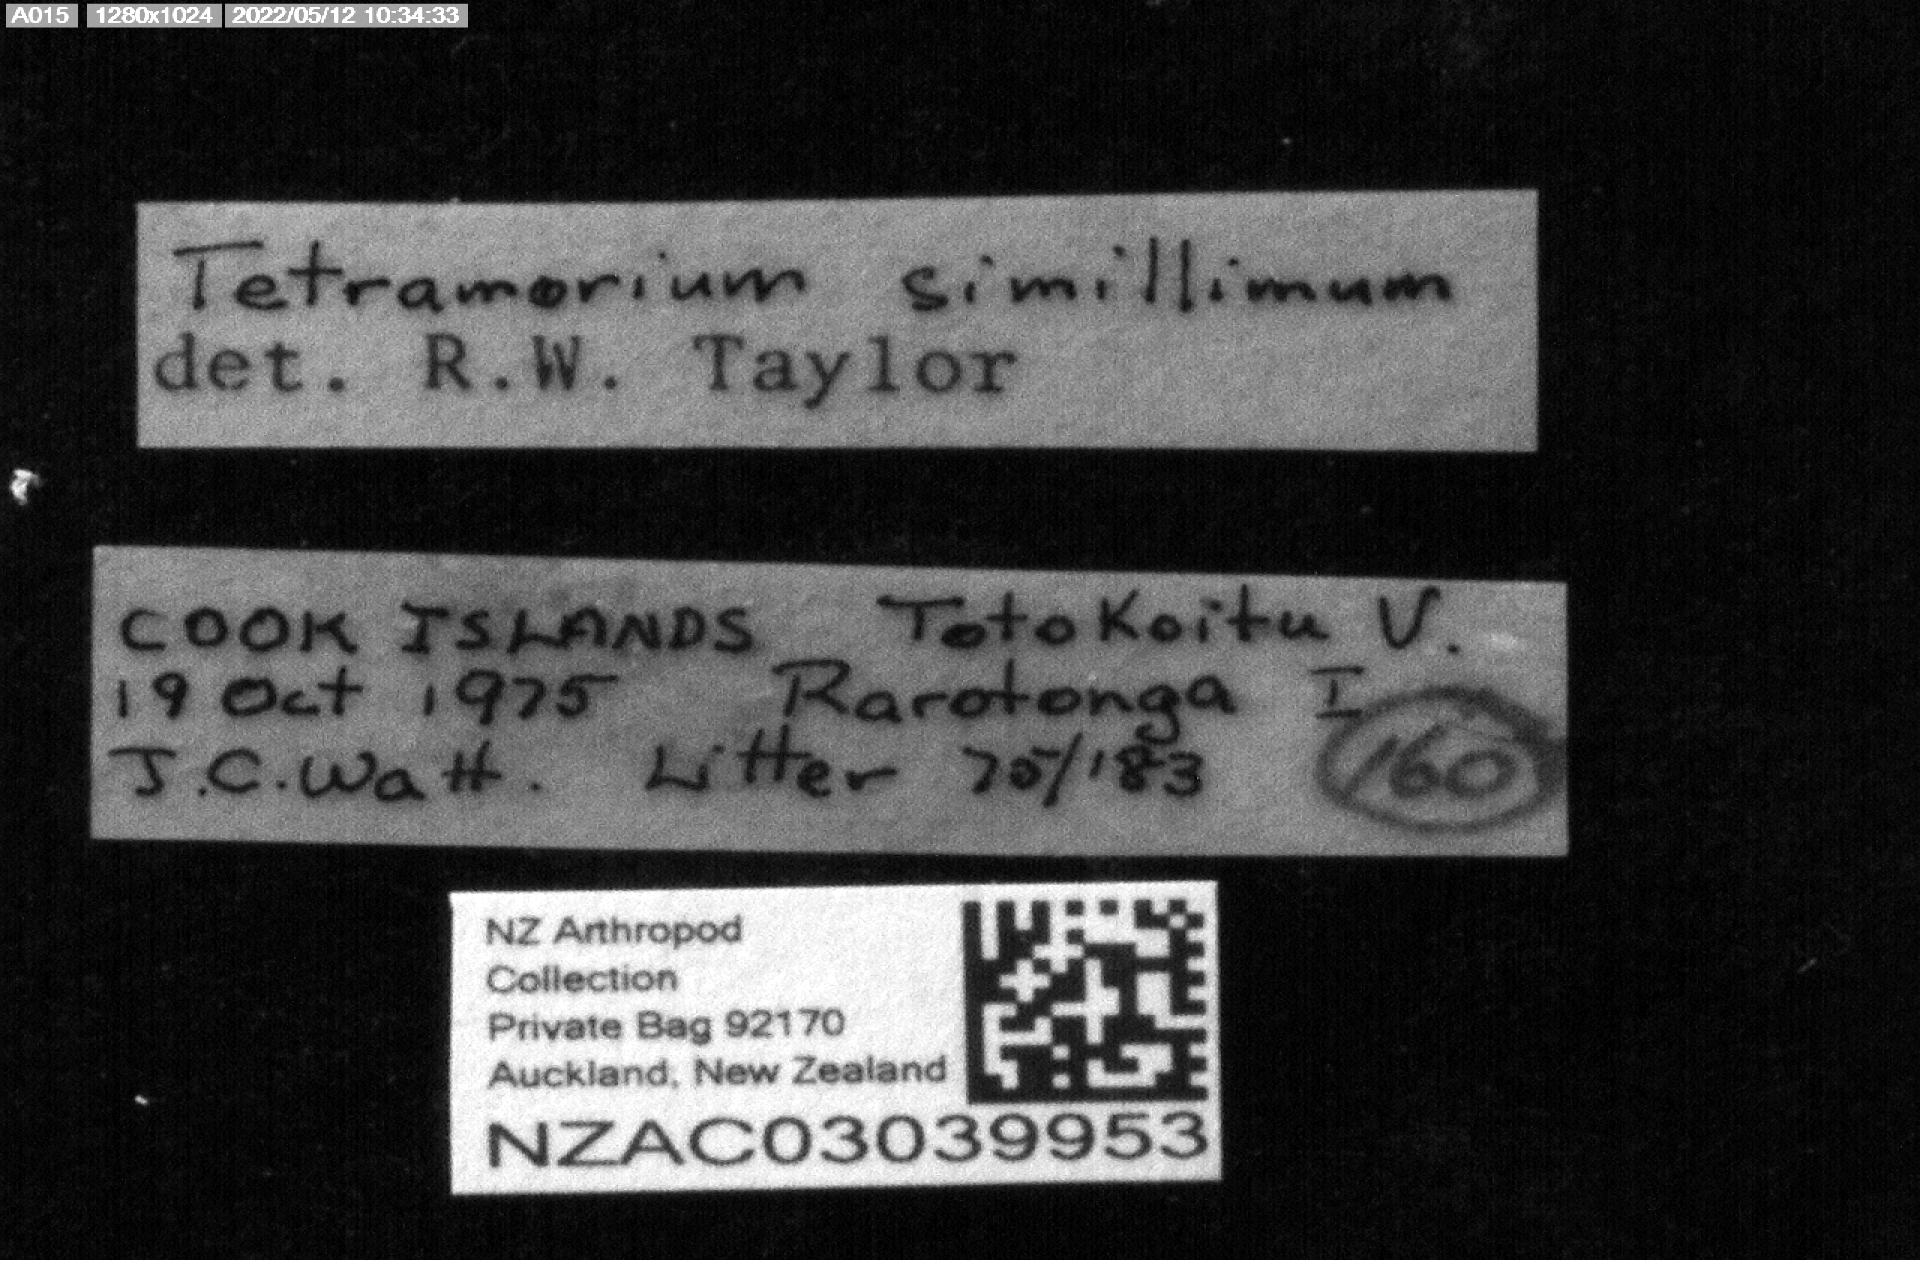 A015 1280x1024 2022/05/12 10:34:33
Tetramorium simillimum
det. R.W. Taylor
COOK ISLANDS Totokoitu V.
19 Oct 1975 Rarotonga I
J.C. Watt. Litter 75/183 160
NZ Arthropod
Collection
Private Bag 92170
Auckland, New Zealand
NZAC03039953